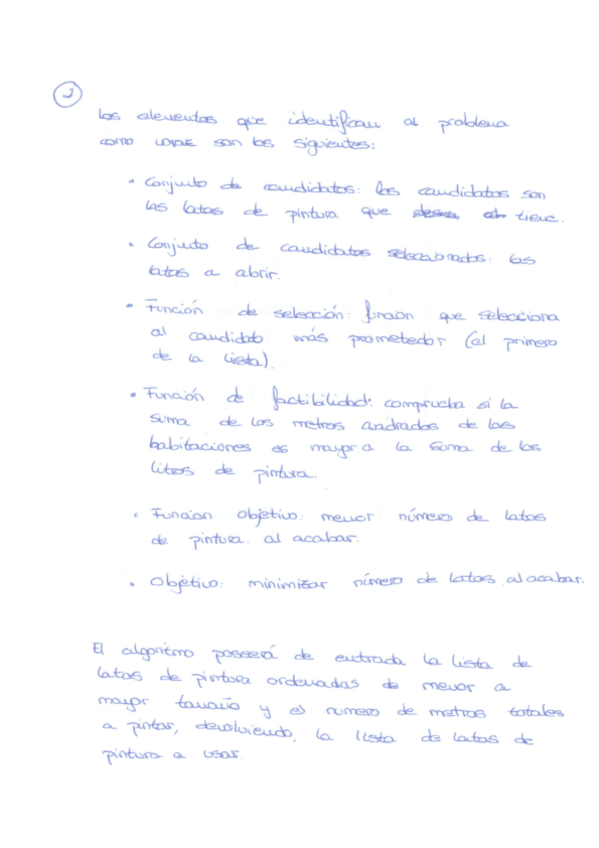 2
Los elementos que identifican al problema
como voraz son los siguientes:
• Conjunto de candidatos: los candidatos son
las latas de pintura que tiene.
• Conjunto de candidatos seleccionados: las
latas a abrir.
• Función de selección: función que selecciona
al candidato más prometedor (el primero
de la lista).
• Función de factibilidad: comprueba si la
suma de los metros cuadrados de las
habitaciones es mayor a la suma de los
litros de pintura.
• Función objetivo: menor número de latas
de pintura al acabar.
• Objetivo: minimizar número de latas al acabar.
El algoritmo poseerá de entrada la lista de
latas de pintura ordenadas de menor a
mayor tamaño y el numero de metros totales
a pintar, devolviendo, la lista de latas de
pintura a usar.